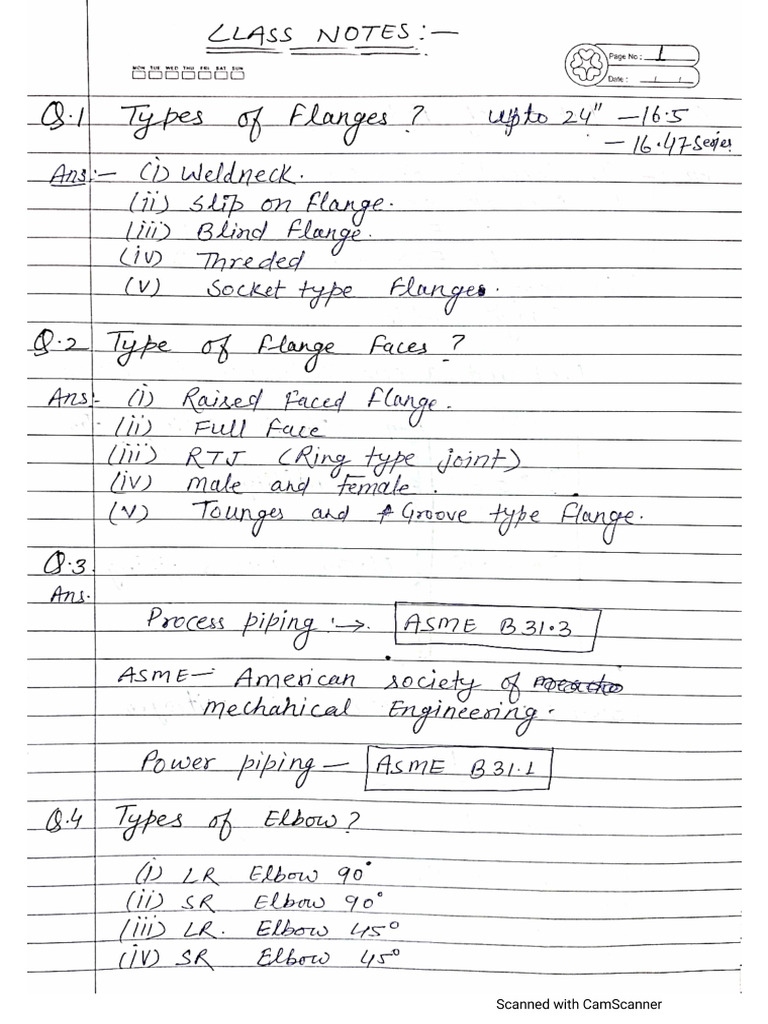 CLASS NOTES:-
MON TUE WED THU FRI SAT SUN
Page No: 1
Date:
Q.1 Types of Flanges? upto 24" - 16.5
- 16.47 Series
Ans:- (i) Weldneck.
(ii) Slip on flange.
(iii) Blind flange.
(iv) Threded
(v) Socket type flange.
Q.2 Type of Flange Faces?
Ans:- (i) Raised Faced flange.
(ii) Full Face
(iii) RTJ (Ring type joint)
(iv) male and female.
(v) Tounges and Groove type flange.
Q.3
Ans.
Process piping :→. ASME B31.3
ASME- American society of
mechahical Engineering.
Power piping - ASME B31.1
Q.4 Types of Elbow?
(i) LR Elbow 90°
(ii) SR Elbow 90°
(iii) LR. Elbow 45°
(iv) SR Elbow 45°
Scanned with CamScanner